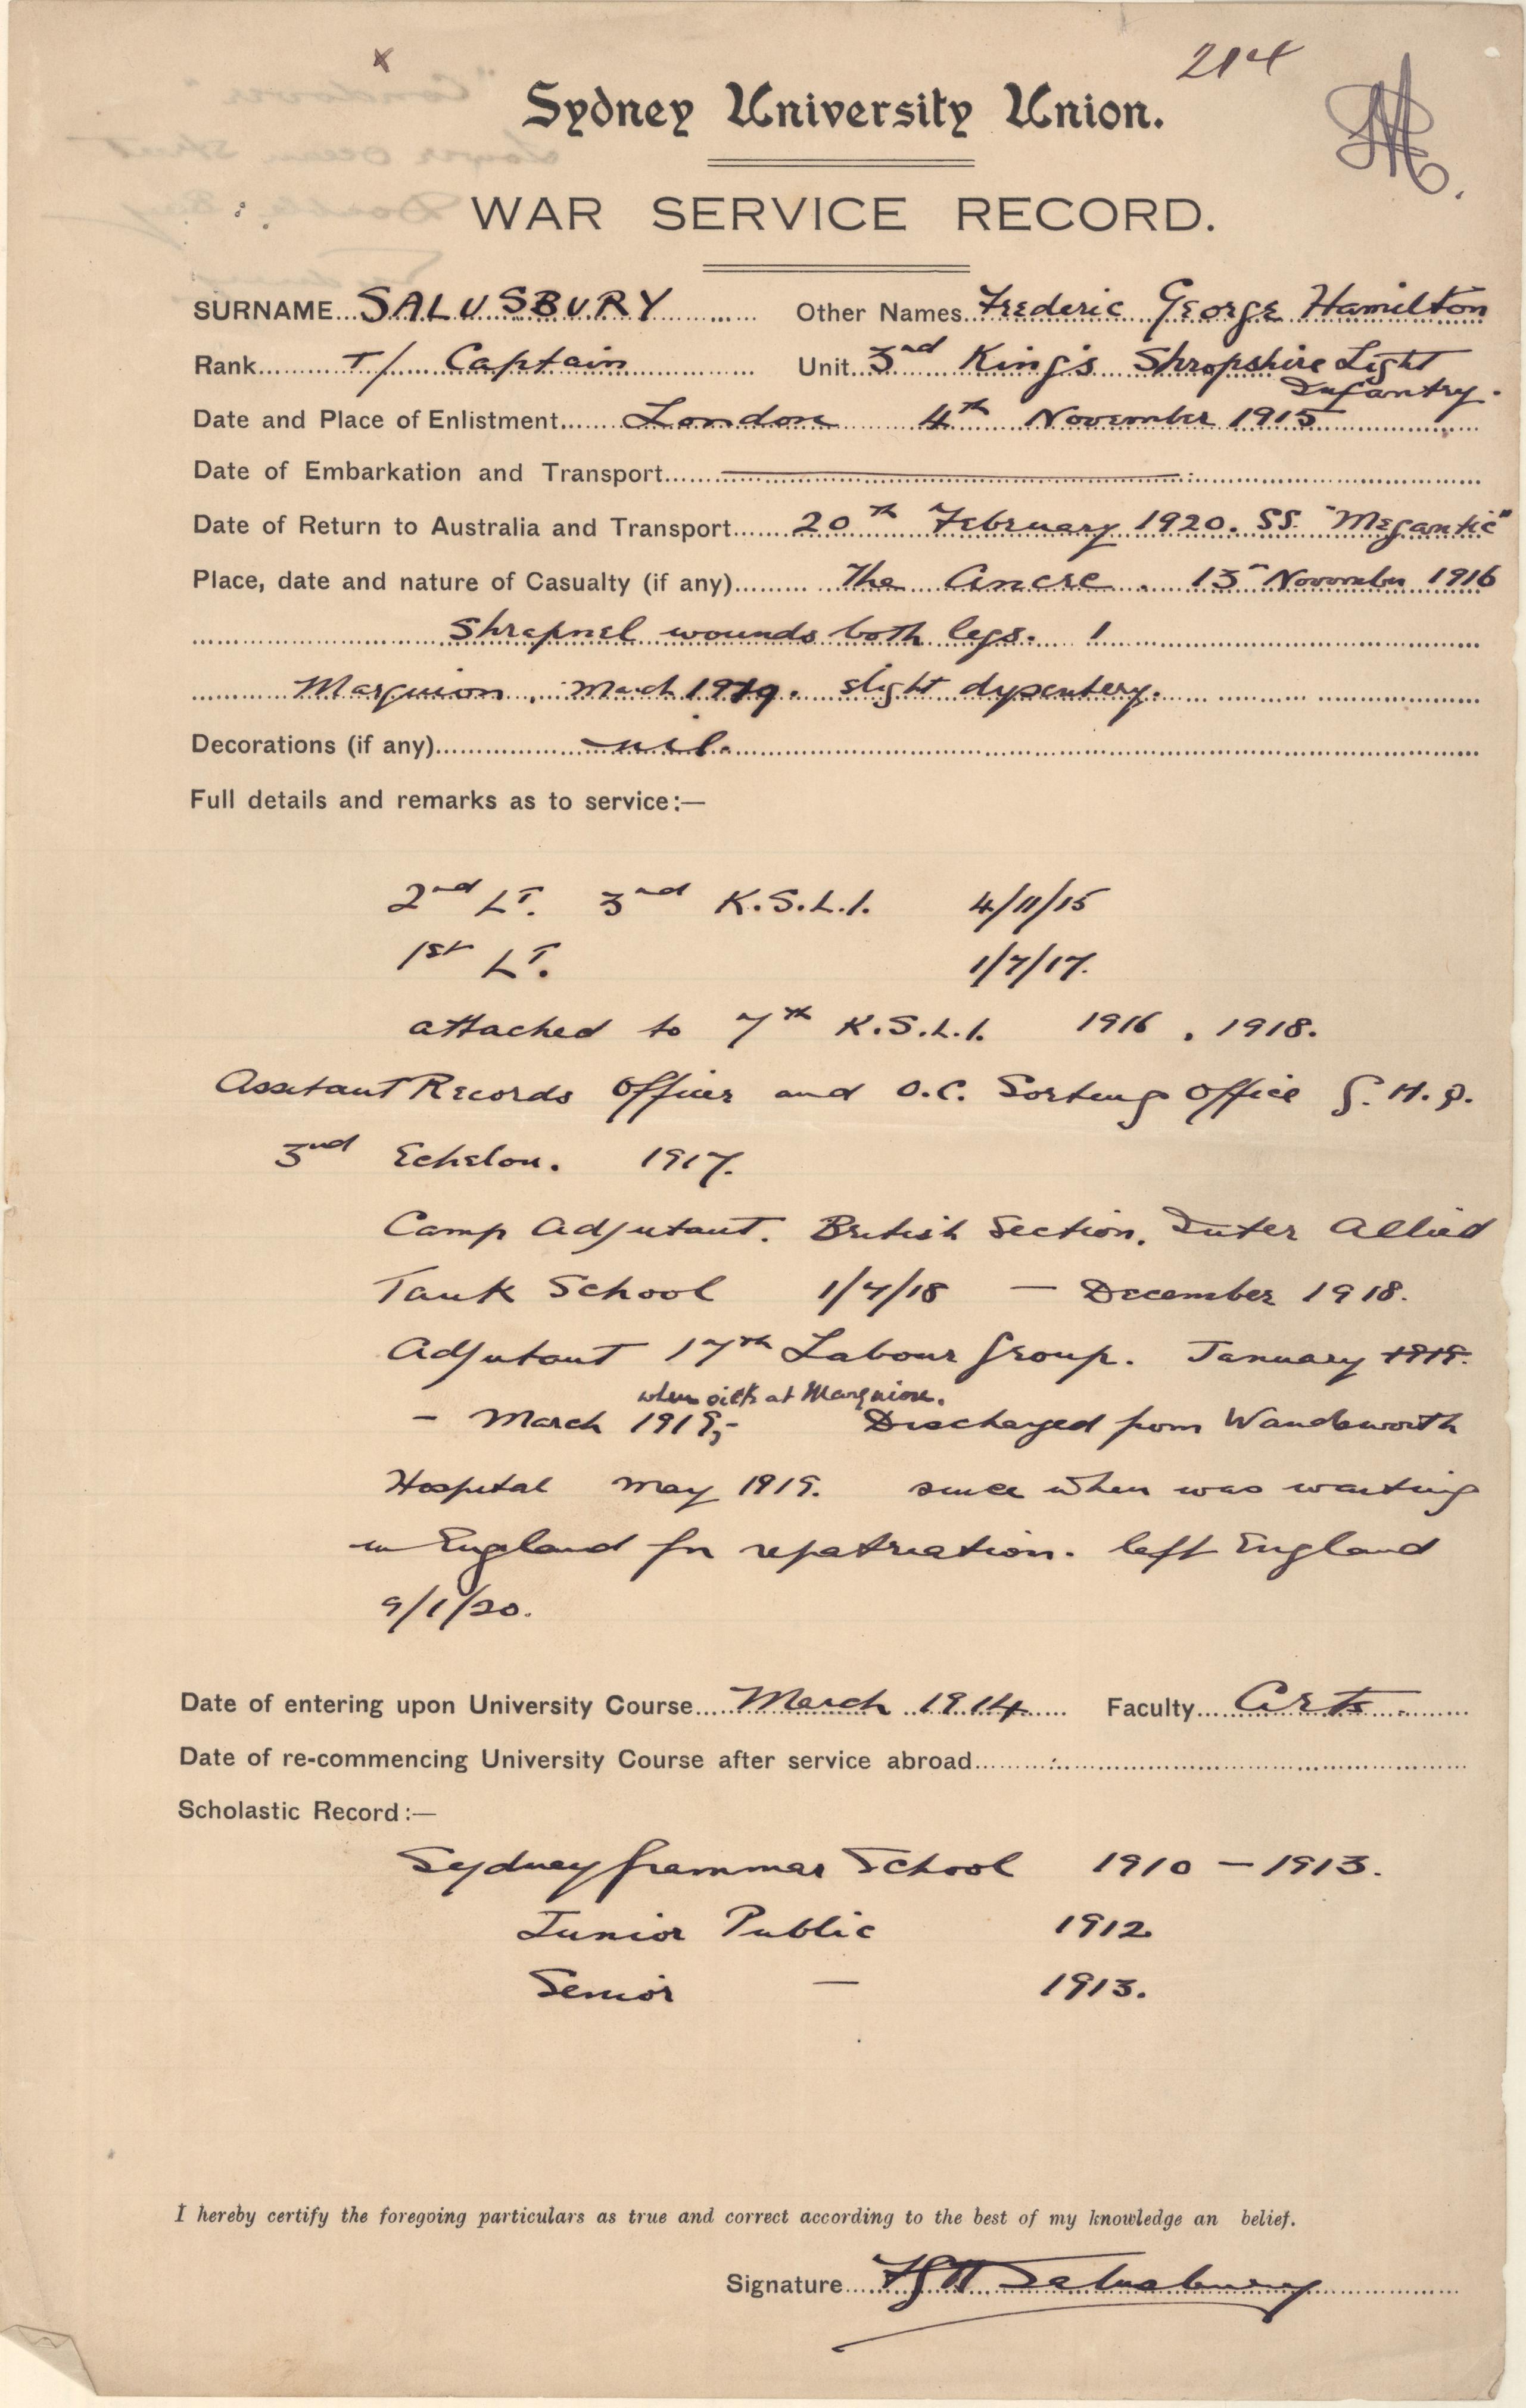 x
214
Sydney University Union.
WAR SERVICE RECORD.
SURNAME SALUSBURY Other Names Frederic George Hamilton
Rank T/ Captain Unit 3rd King's Shropshire Light
Infantry.
Date and Place of Enlistment London 4th November 1915
Date of Embarkation and Transport
Date of Return to Australia and Transport 20th February 1920. SS. "Megantic"
Place, date and nature of Casualty (if any) The Ancre. 13th November 1916
Shrapnel wounds both legs.
Marquion, March 1919. slight dysentery.
Decorations (if any) nil.
Full details and remarks as to service:—
2nd LT. 3rd K.S.L.I. 4/11/15
1st LT. 1/7/17.
attached to 7th K.S.L.I. 1916, 1918.
Assitant Records Officer and O.C. Sorting Office G.H.Q.
3rd Echelon. 1917.
Camp Adjutant. British Section. Inter Allied
Tank School 1/7/18 — December 1918.
Adjutant 17th Labour Group. January 1919.
when sick at Marquion.
— March 1919,— Discharged from Wandsworth
Hospital May 1919. since when was waiting
in England for repatriation. left England
9/1/20.
Date of entering upon University Course March 1914 Faculty Arts.
Date of re-commencing University Course after service abroad
Scholastic Record:—
Sydney Grammar School 1910 — 1913.
Junior Public 1912
Senior — 1913.
I hereby certify the foregoing particulars as true and correct according to the best of my knowledge an belief.
Signature FGH Salusbury